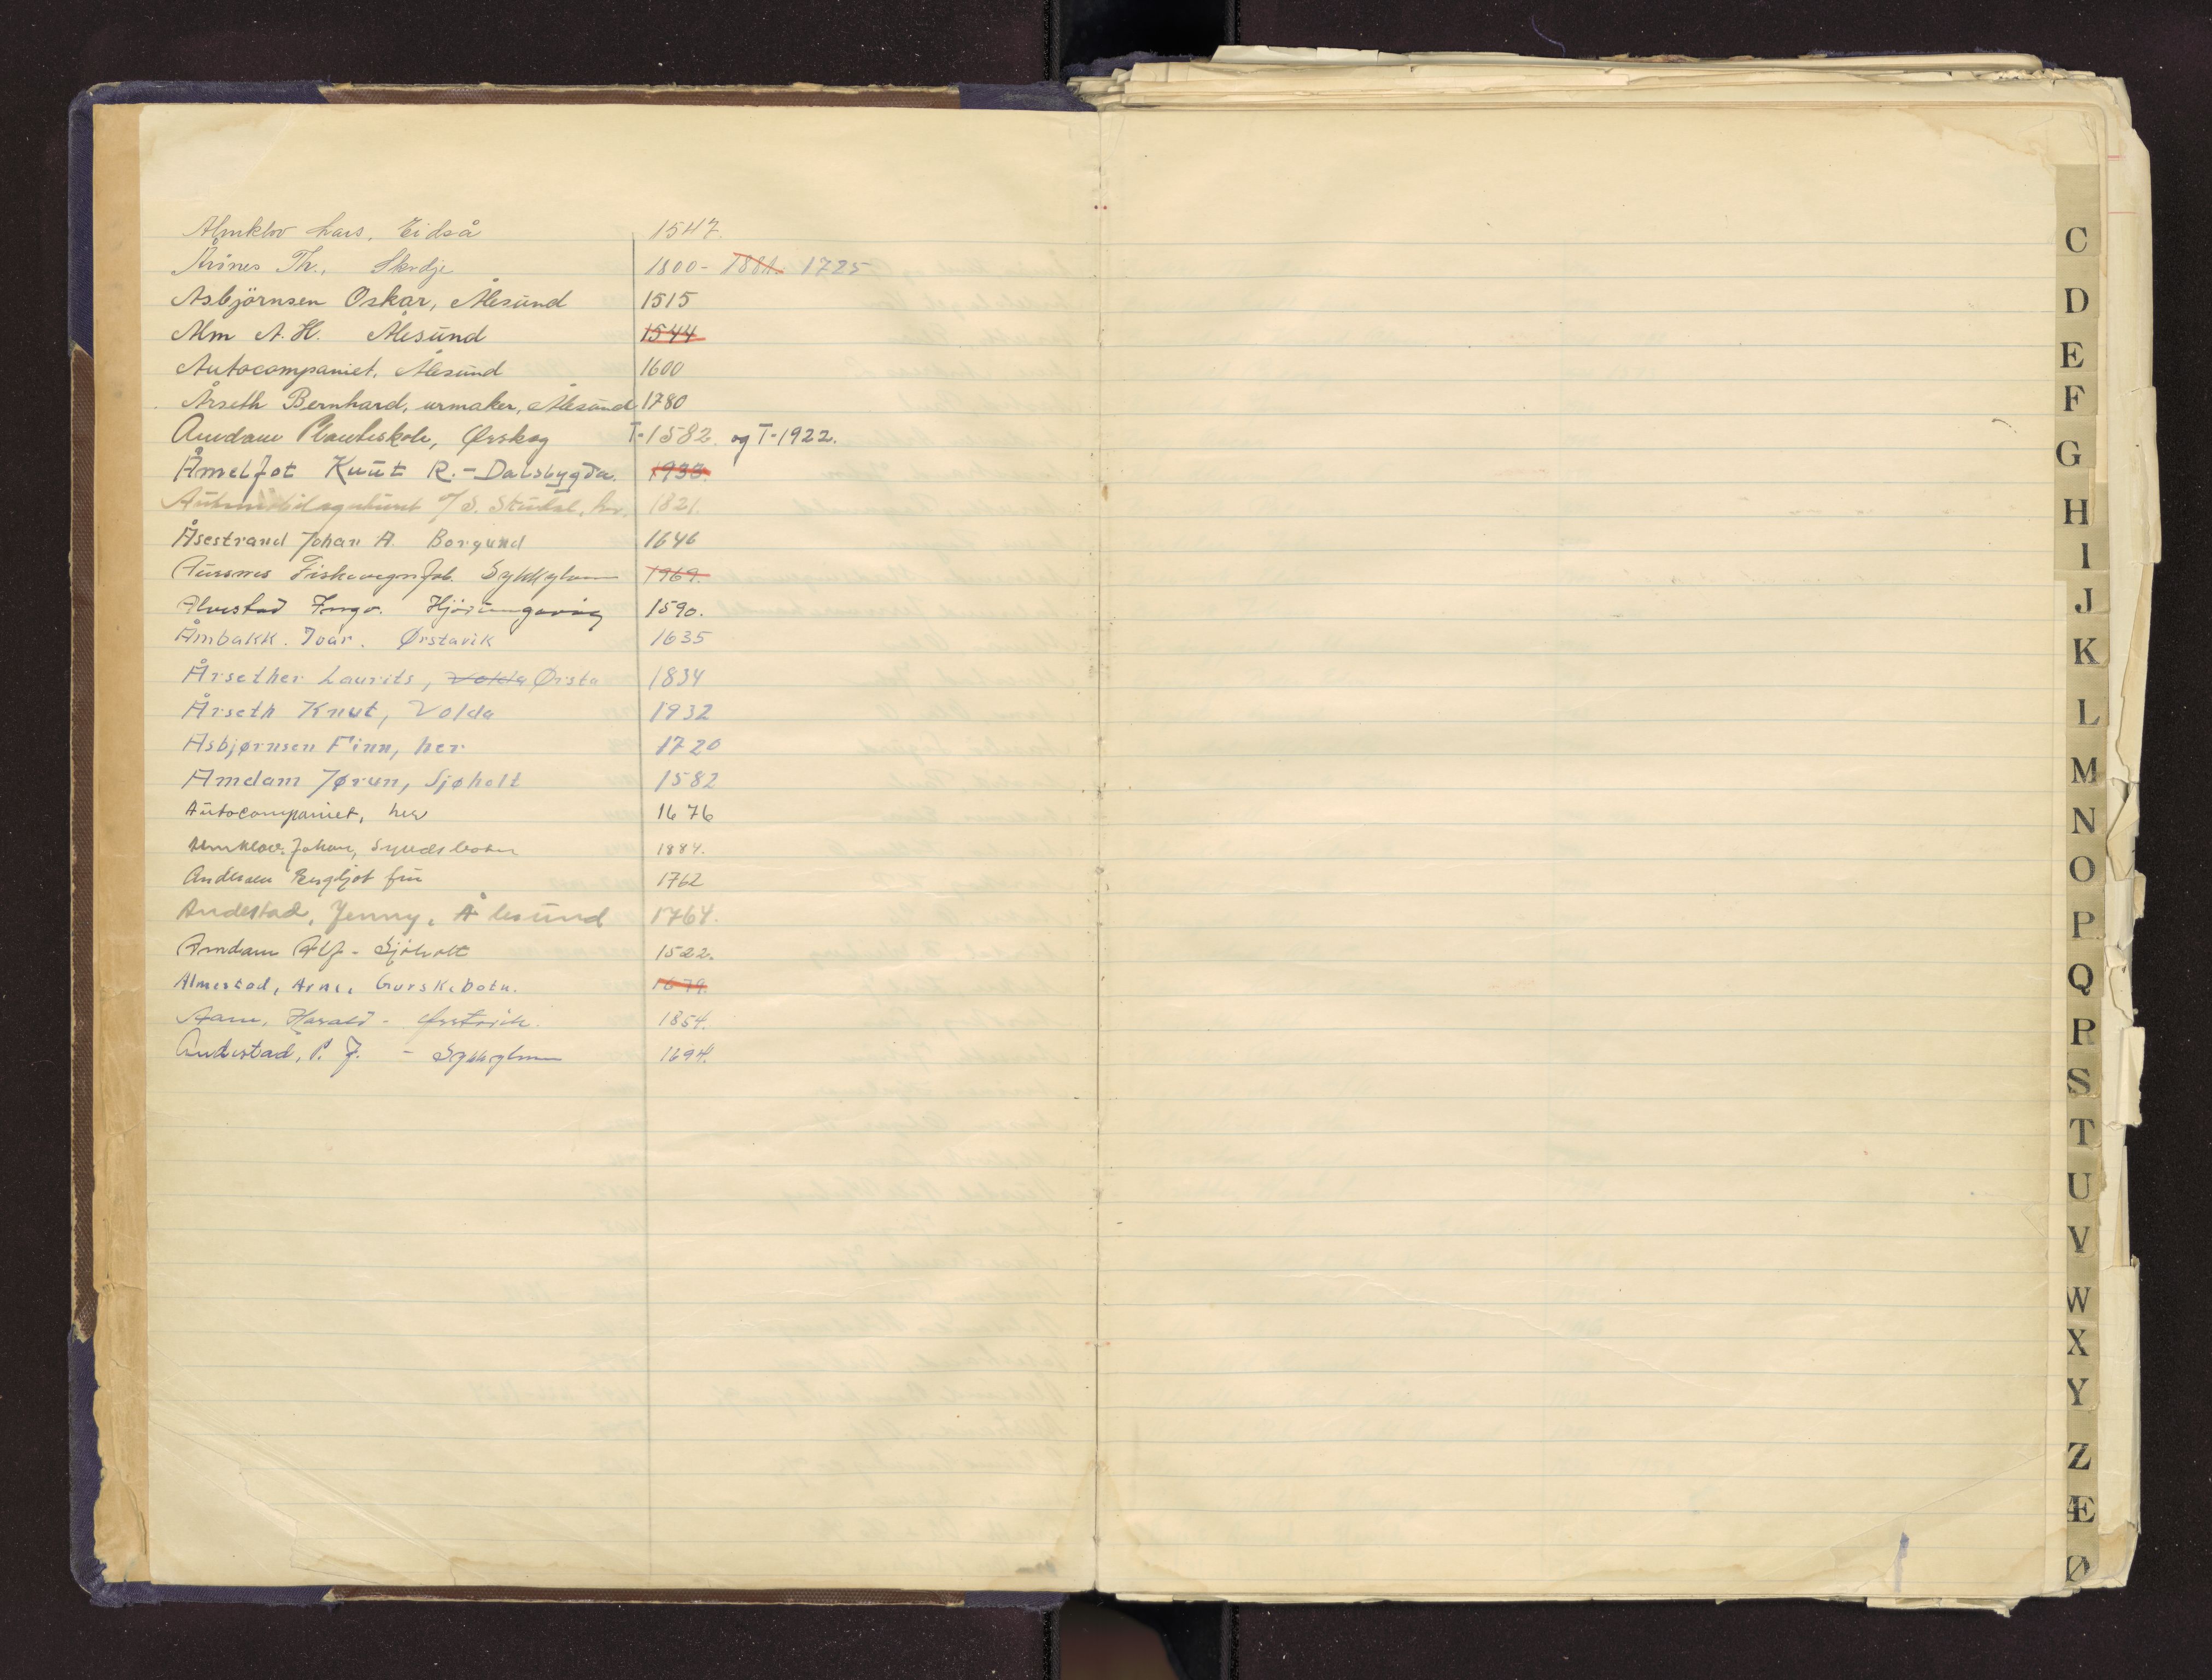 Almklov Lars, Eidså 1547.
Årønes Th., Skodje 1800- 1881. 1725
Asbjörnsen Oskar, Ålesund 1515
Alm A. H. Ålesund 1544
Autocompaniet, Ålesund 1600
Årseth Bernhard, urmaker, Ålesund 1780
Amdam Planteskole, Ørskog T-1582. og T-1922.
Åmelfot Knut R. - Dalsbygda. 1933.
A/S. 1821.
Åsestrand Johan A. Borgund 1646
Aursnes Sykkylven 1969.
Alvestad Ingv. Hjörungavåg 1590.
Åmbakk. Ivar. Ørstavik 1635
Årsether Laurits, Volda Ørsta 1834
Årseth Knut, Volda 1932
Asbjørnsen Finn, her 1720
Amdam Jørun, Sjøholt 1582
Autocompaniet, her 1676
Almklov Johan, 1884.
Andersen Bergljot frü 1762
Andestad, Jenny, Ålesund 1764.
Amdam Alf - Sjöholt 1522.
Almestad, Arne, Gurskebotn. 1679.
Aam, Harald - Ørstvik. 1854.
Andestad, P. J. - Sykkylven 1694.
C
D
E
F
G
H
I
J
K
L
M
N
O
P
Q
R
S
T
U
V
W
X
Y
Z
Æ
Ø